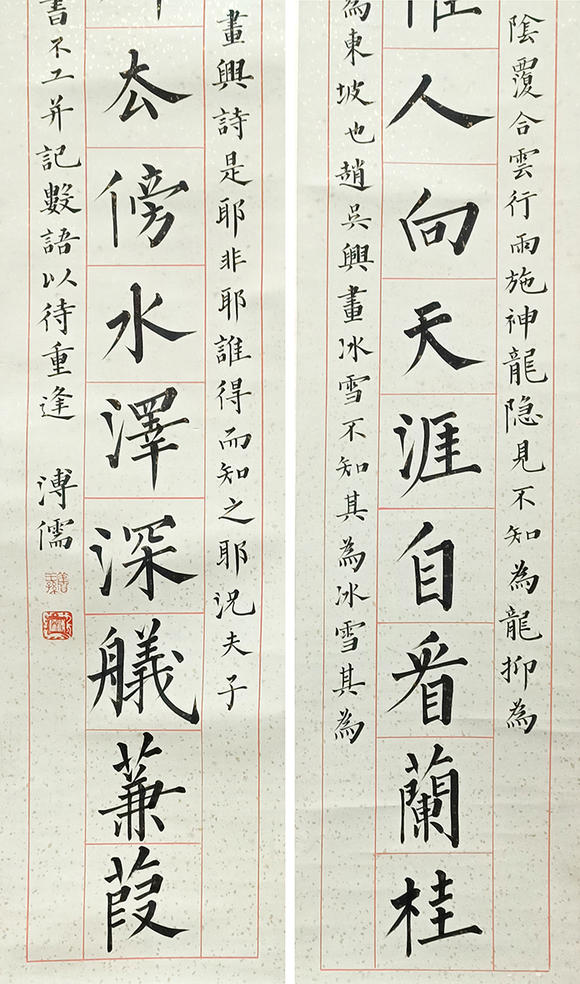 陰覆合雲行雨施神龍隐見不知為龍抑為
人向天涯自看蘭桂
為東坡也趙吳興畫冰雪不知其為冰雪其為
畫興詩是耶非耶誰得而知之耶況夫子
厺傍水澤深艤蒹葭
書不工并記數語以待重逢 溥儒